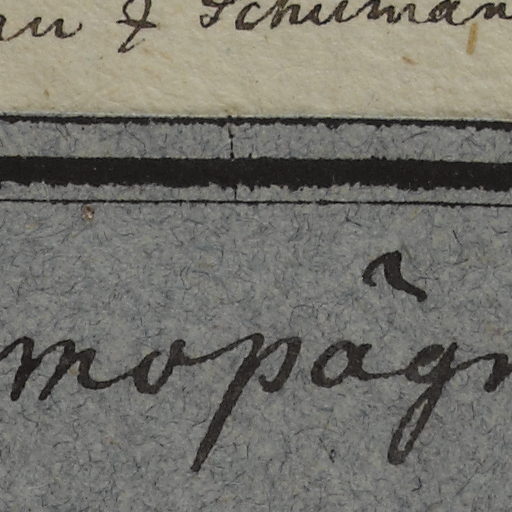 an & Schuman
mopāgn